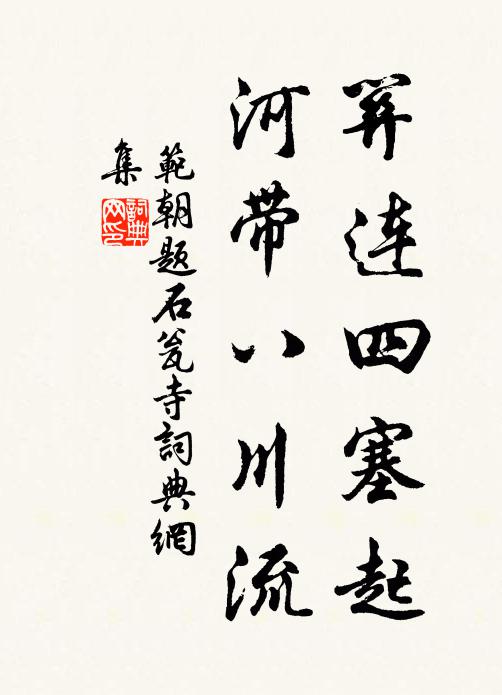 关连四塞起
河带八川流
範朝题石瓮寺詞典網
集
詞典
网印